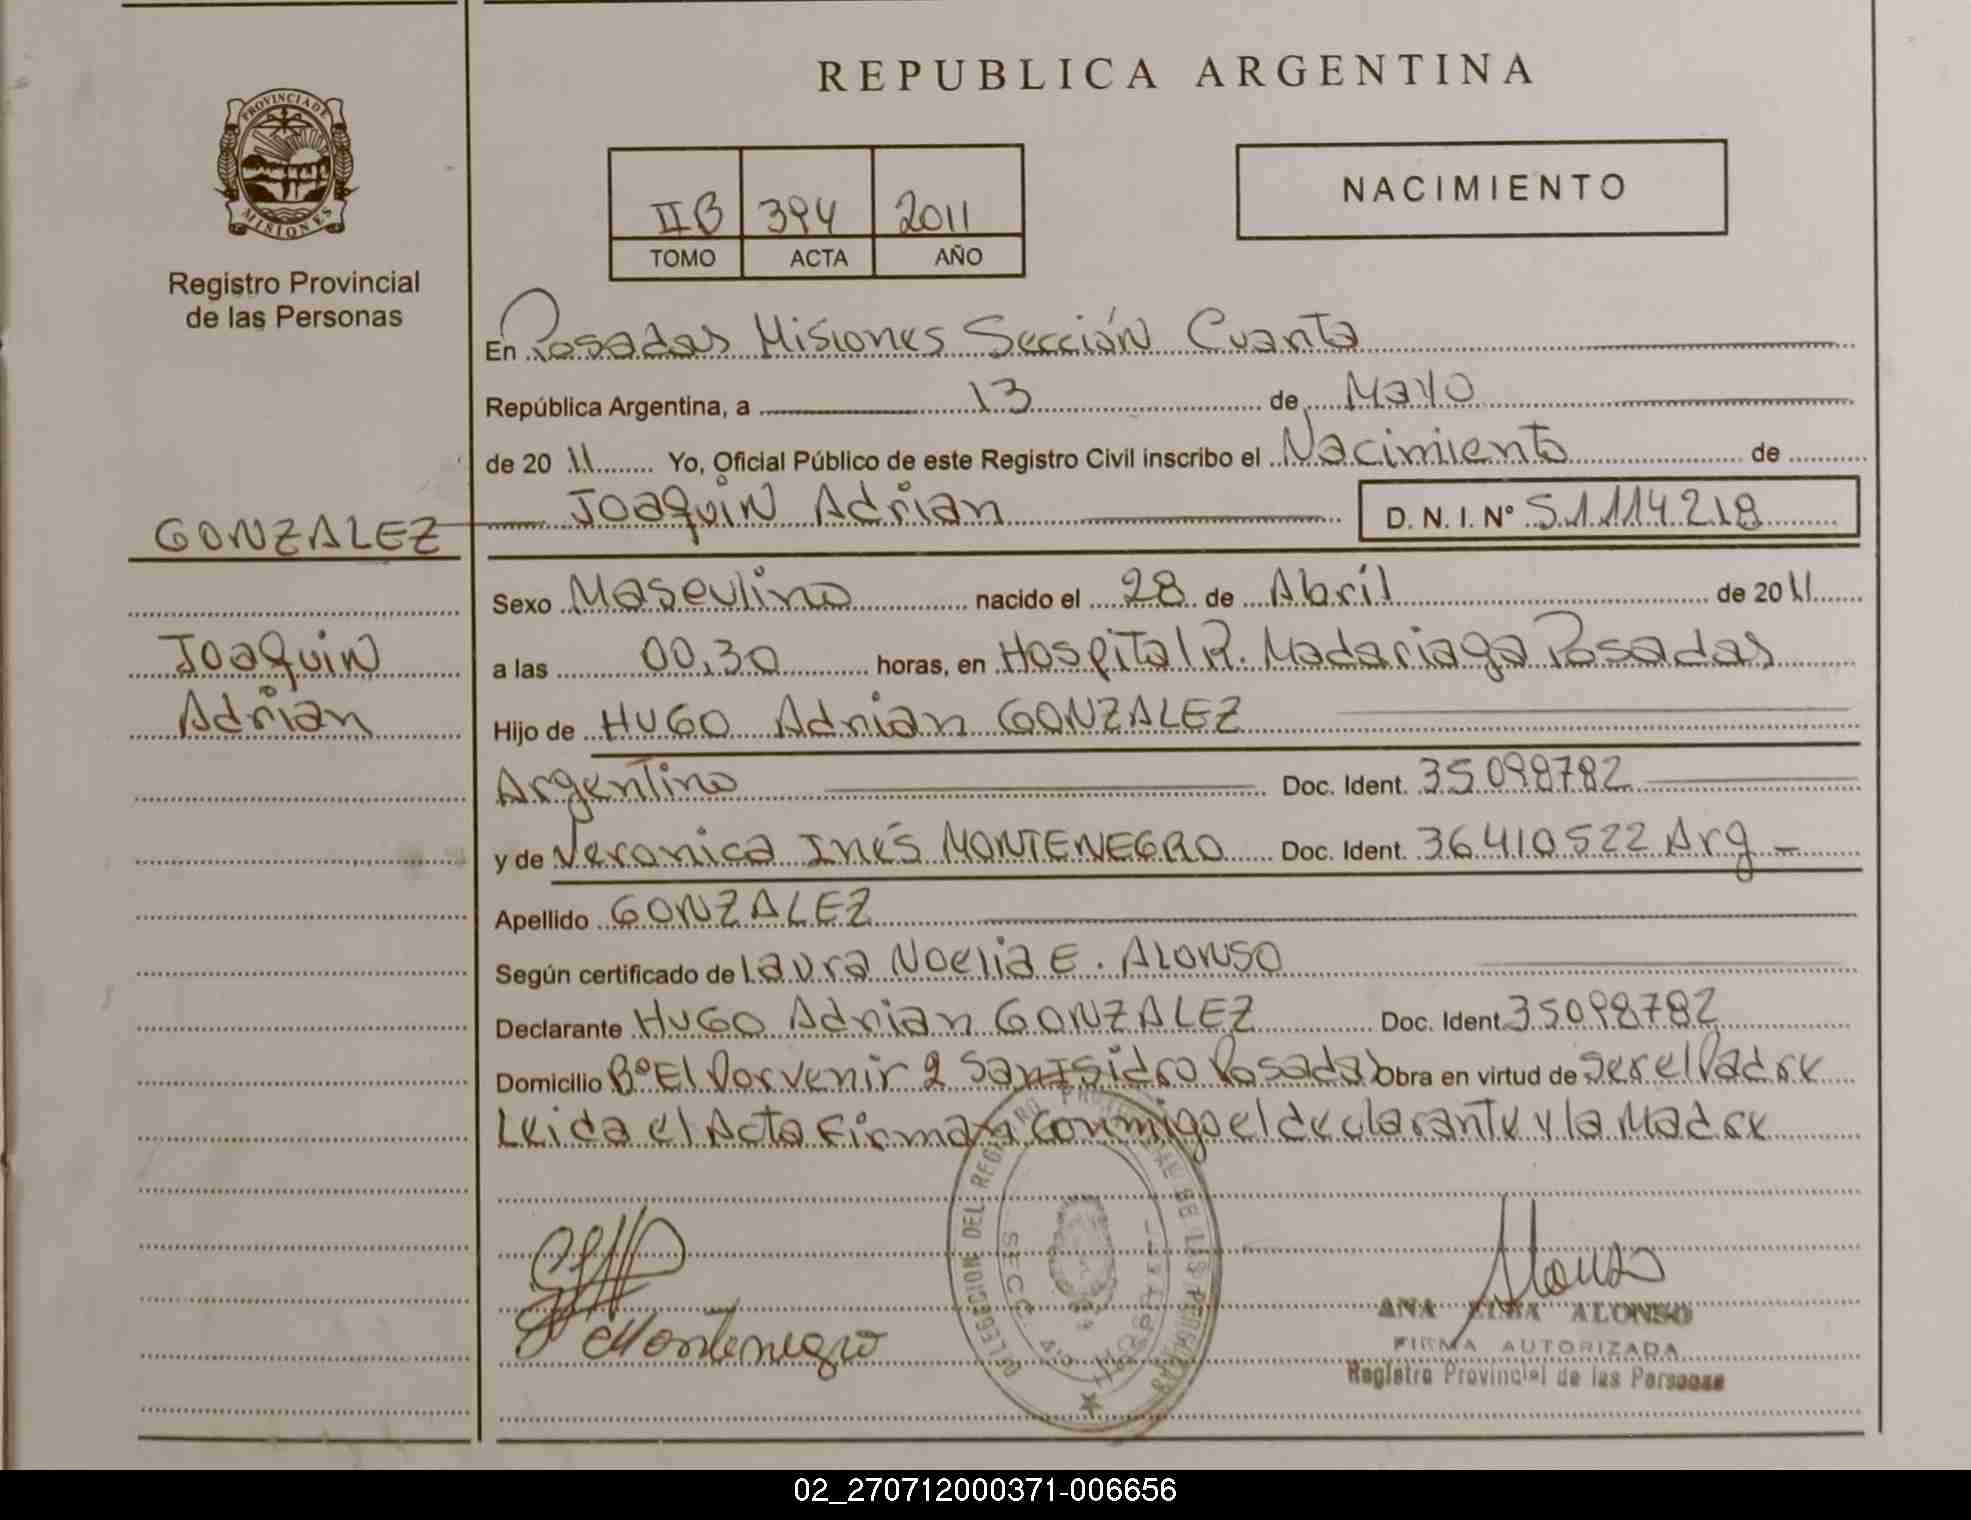 REPUBLICA ARGENTINA
PROVINCIA DE
MISIONES
Registro Provincial
de las Personas
NACIMIENTO
IIB 394 2011
TOMO ACTA AÑO
En Posadas Misiones Sección Cuarta
República Argentina, a 13 de Mayo
de 20 11 Yo, Oficial Público de este Registro Civil inscribo el Nacimiento de
Joaquin Adrian D. N. I. N° 51.114.218
GONZALEZ
Joaquin
Adrian
Sexo Masculino nacido el 28 de Abril de 2011
a las 00,30 horas, en Hospital R. Madariaga Posadas
Hijo de HUGO Adrian GONZALEZ
Argentino Doc. Ident. 35098782
y de Veronica Inés MONTENEGRO Doc. Ident. 36410522 Arg -
Apellido GONZALEZ
Según certificado de Laura Noelia E. Alonso
Declarante HUGO Adrian GONZALEZ Doc. Ident. 35098782
Domicilio B° El Porvenir 2 San Isidro Posadas Obra en virtud de ser el Padre
Leida el Acta Firman conmigo el declarante y la Madre
DELEGACION DEL REGISTRO PROVINCIAL DE LAS PERSONAS
SECC. 4ª HOSPITAL
Montenegro
Alonso
ANA ELBA ALONSO
FIRMA AUTORIZADA
Registro Provincial de las Personas
02_270712000371-006656